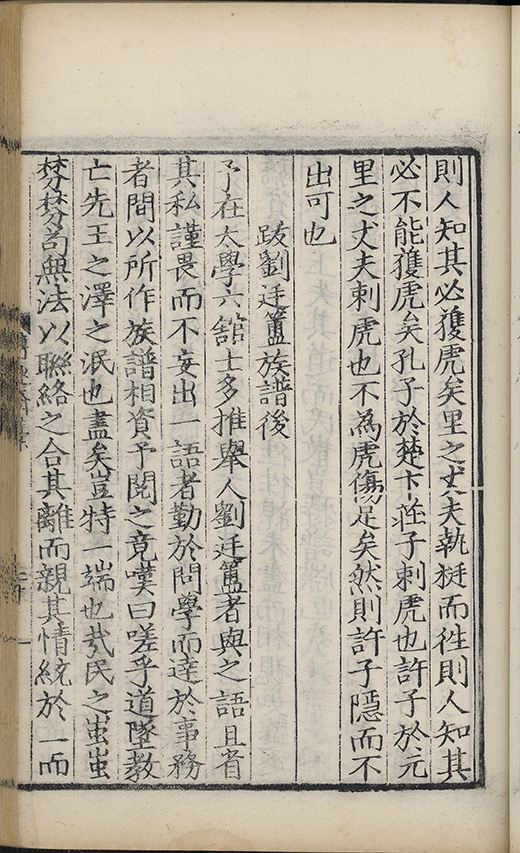 則人知其必獲虎矣里之丈夫執挺而徃則人知其
必不能獲虎矣孔子於楚卞荘子刺虎也許子於元
里之丈夫刺虎也不為虎傷足矣然則許子隠而不
出可也
跋劉廷簠族譜後
予在太學六舘士多推舉人劉廷簠者與之語且省
其私謹畏而不妄出一語者勤於問學而達於事務
者間以所作族譜相資予閱之竟嘆曰嗟乎道墜教
亡先王之澤之泯也盡矣豈特一端也㢤民之蚩蚩
棼棼茍無法以聯絡之合其離而親其情統於一而